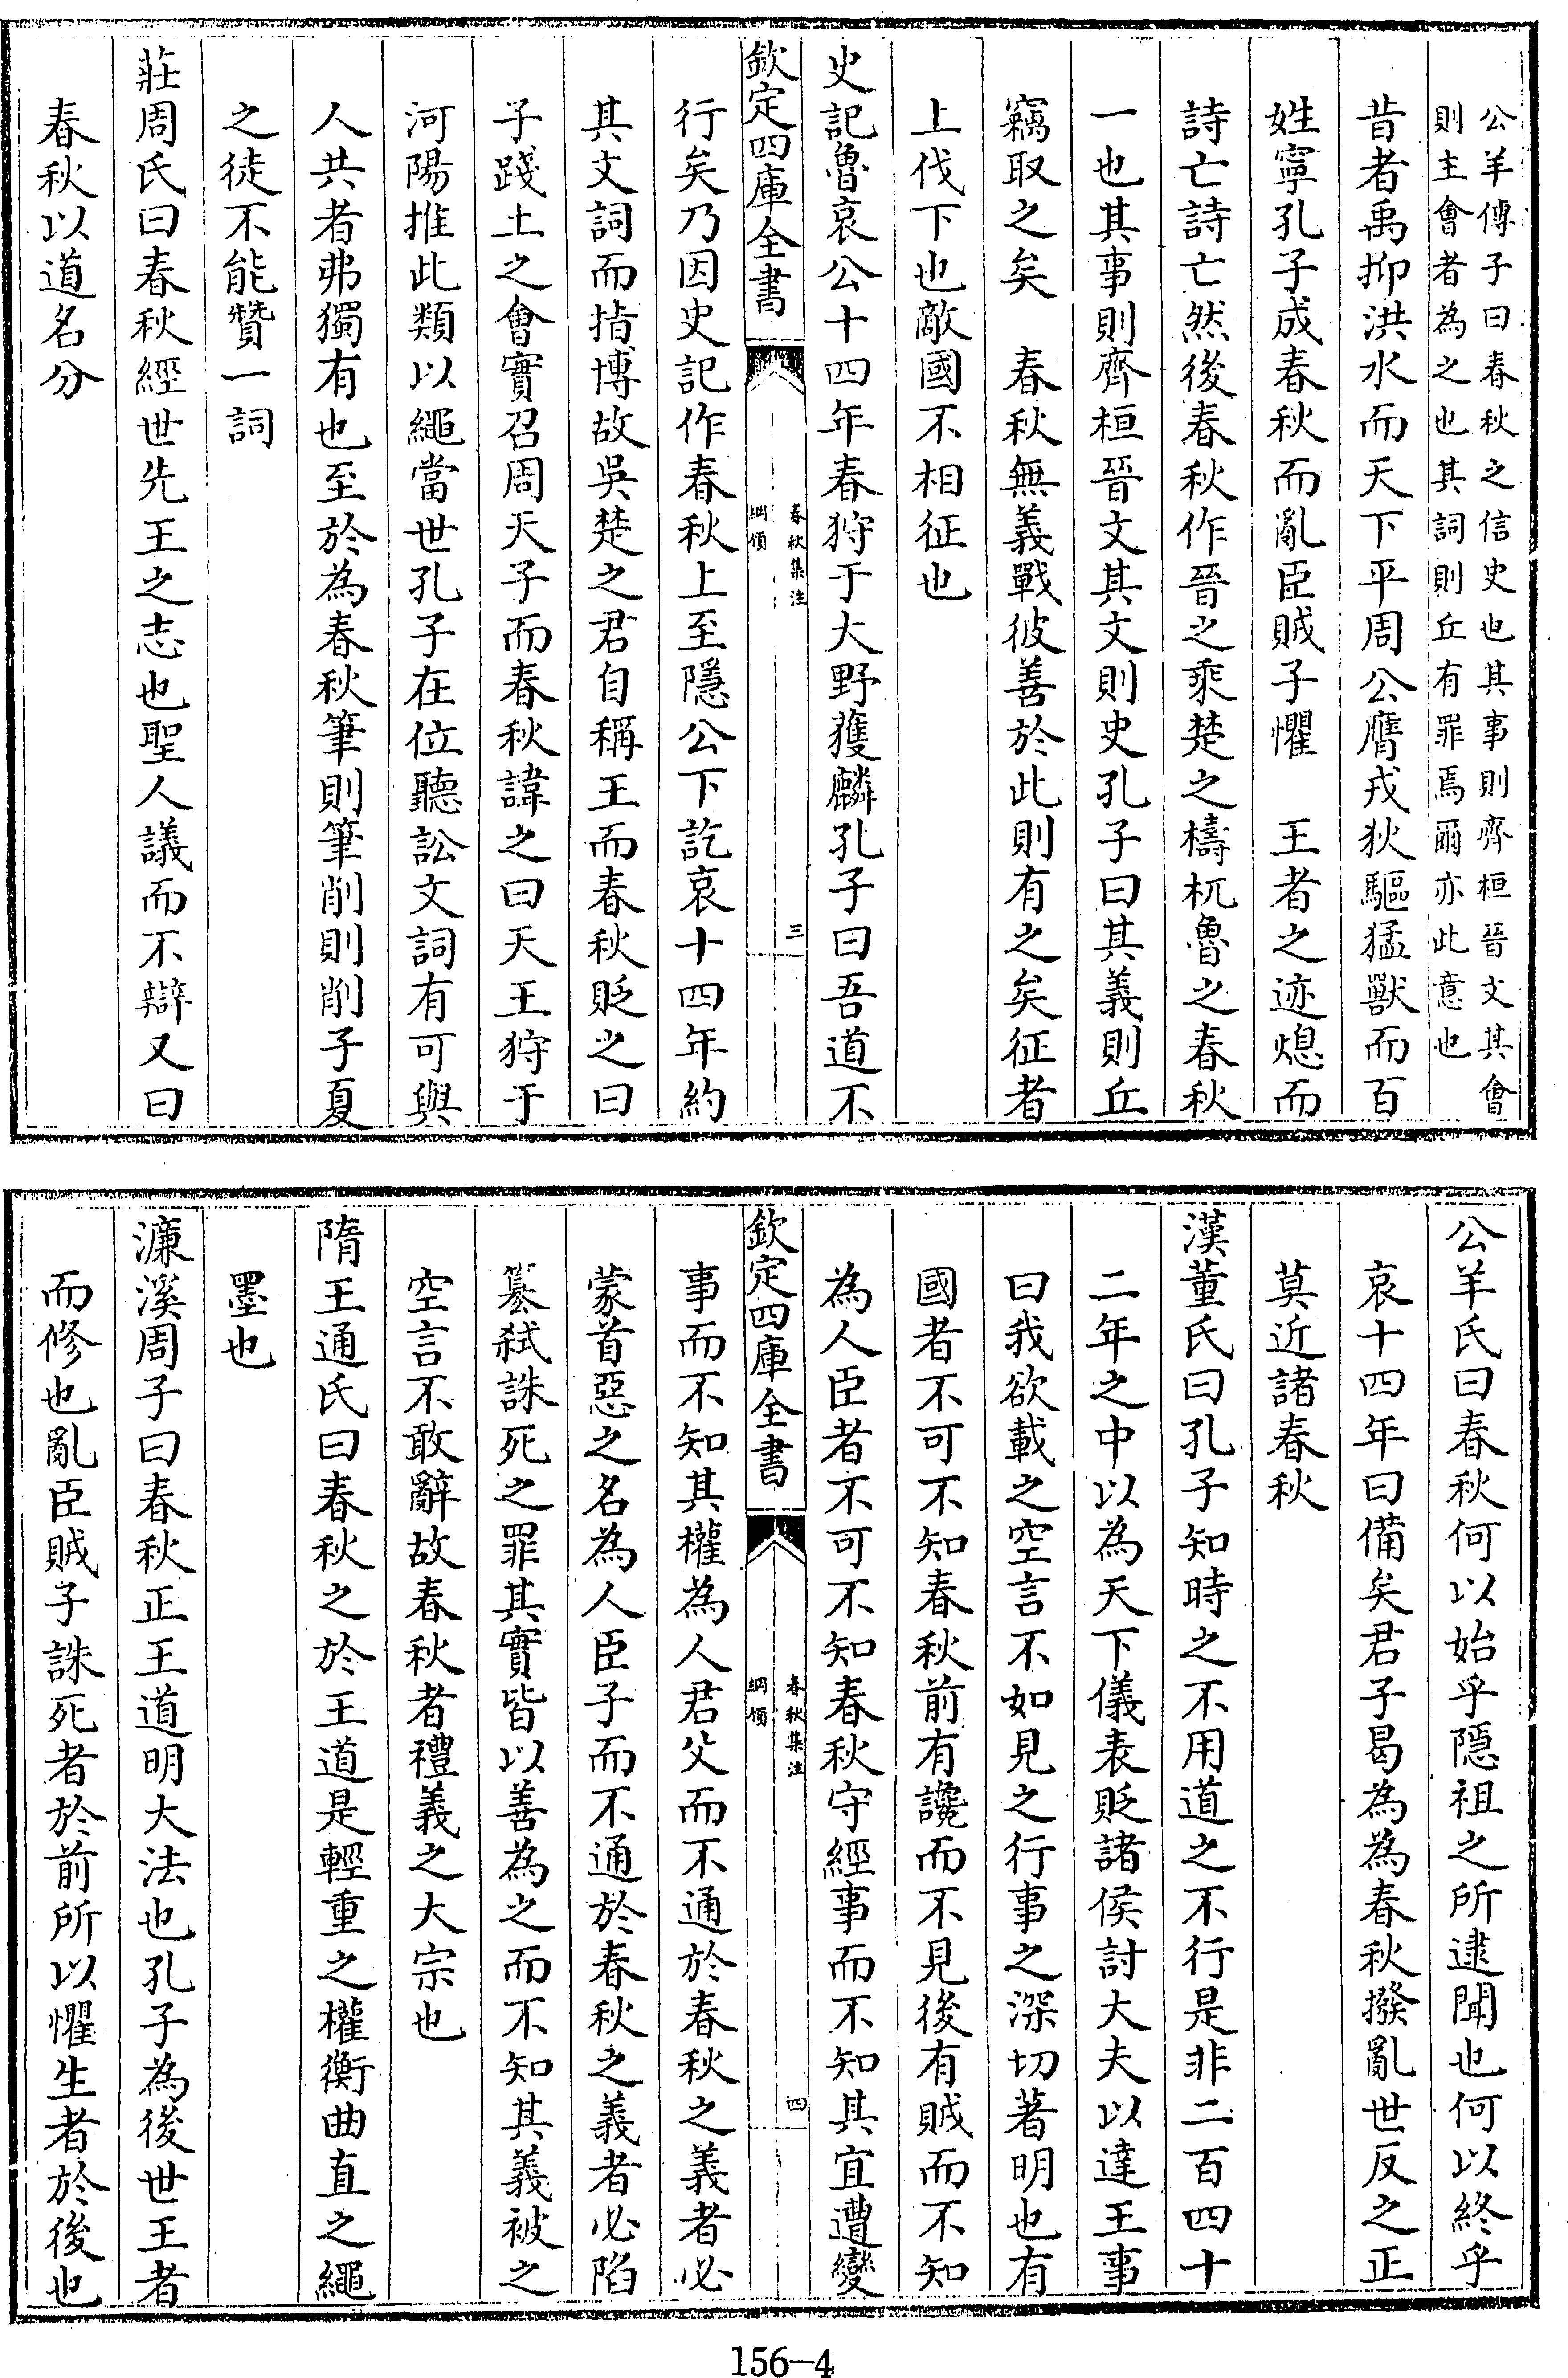 公羊傳子曰春秋之信史也其事則齊桓晉文其會
則主會者為之也其詞則丘有罪焉爾亦此意也
昔者禹抑洪水而天下平周公膺戎狄驅猛獸而百
姓寧孔子成春秋而亂臣賊子懼　王者之迹熄而
詩亡詩亡然後春秋作晉之乘楚之檮杌魯之春秋
一也其事則齊桓晉文其文則史孔子曰其義則丘
竊取之矣　春秋無義戰彼善於此則有之矣征者
上伐下也敵國不相征也
史記魯哀公十四年春狩于大野獲麟孔子曰吾道不
欽定四庫全書
春秋集注
綱領
三
行矣乃因史記作春秋上至隱公下訖哀十四年約
其文詞而指博故吳楚之君自稱王而春秋貶之曰
子踐土之會實召周天子而春秋諱之曰天王狩于
河陽推此類以繩當世孔子在位聽訟文詞有可與
人共者弗獨有也至於為春秋筆則筆削則削子夏
之徒不能贊一詞
莊周氏曰春秋經世先王之志也聖人議而不辯又曰
春秋以道名分
公羊氏曰春秋何以始乎隱祖之所逮聞也何以終乎
哀十四年曰備矣君子曷為為春秋撥亂世反之正
莫近諸春秋
漢董氏曰孔子知時之不用道之不行是非二百四十
二年之中以為天下儀表貶諸侯討大夫以達王事
曰我欲載之空言不如見之行事之深切著明也有
國者不可不知春秋前有讒而不見後有賊而不知
為人臣者不可不知春秋守經事而不知其宜遭變
欽定四庫全書
春秋集注
綱領
四
事而不知其權為人君父而不通於春秋之義者必
蒙首惡之名為人臣子而不通於春秋之義者必陷
簒弑誅死之罪其實皆以善為之而不知其義被之
空言不敢辭故春秋者禮義之大宗也
隋王通氏曰春秋之於王道是輕重之權衡曲直之繩
墨也
濂溪周子曰春秋正王道明大法也孔子為後世王者
而修也亂臣賊子誅死者於前所以懼生者於後也
156-4